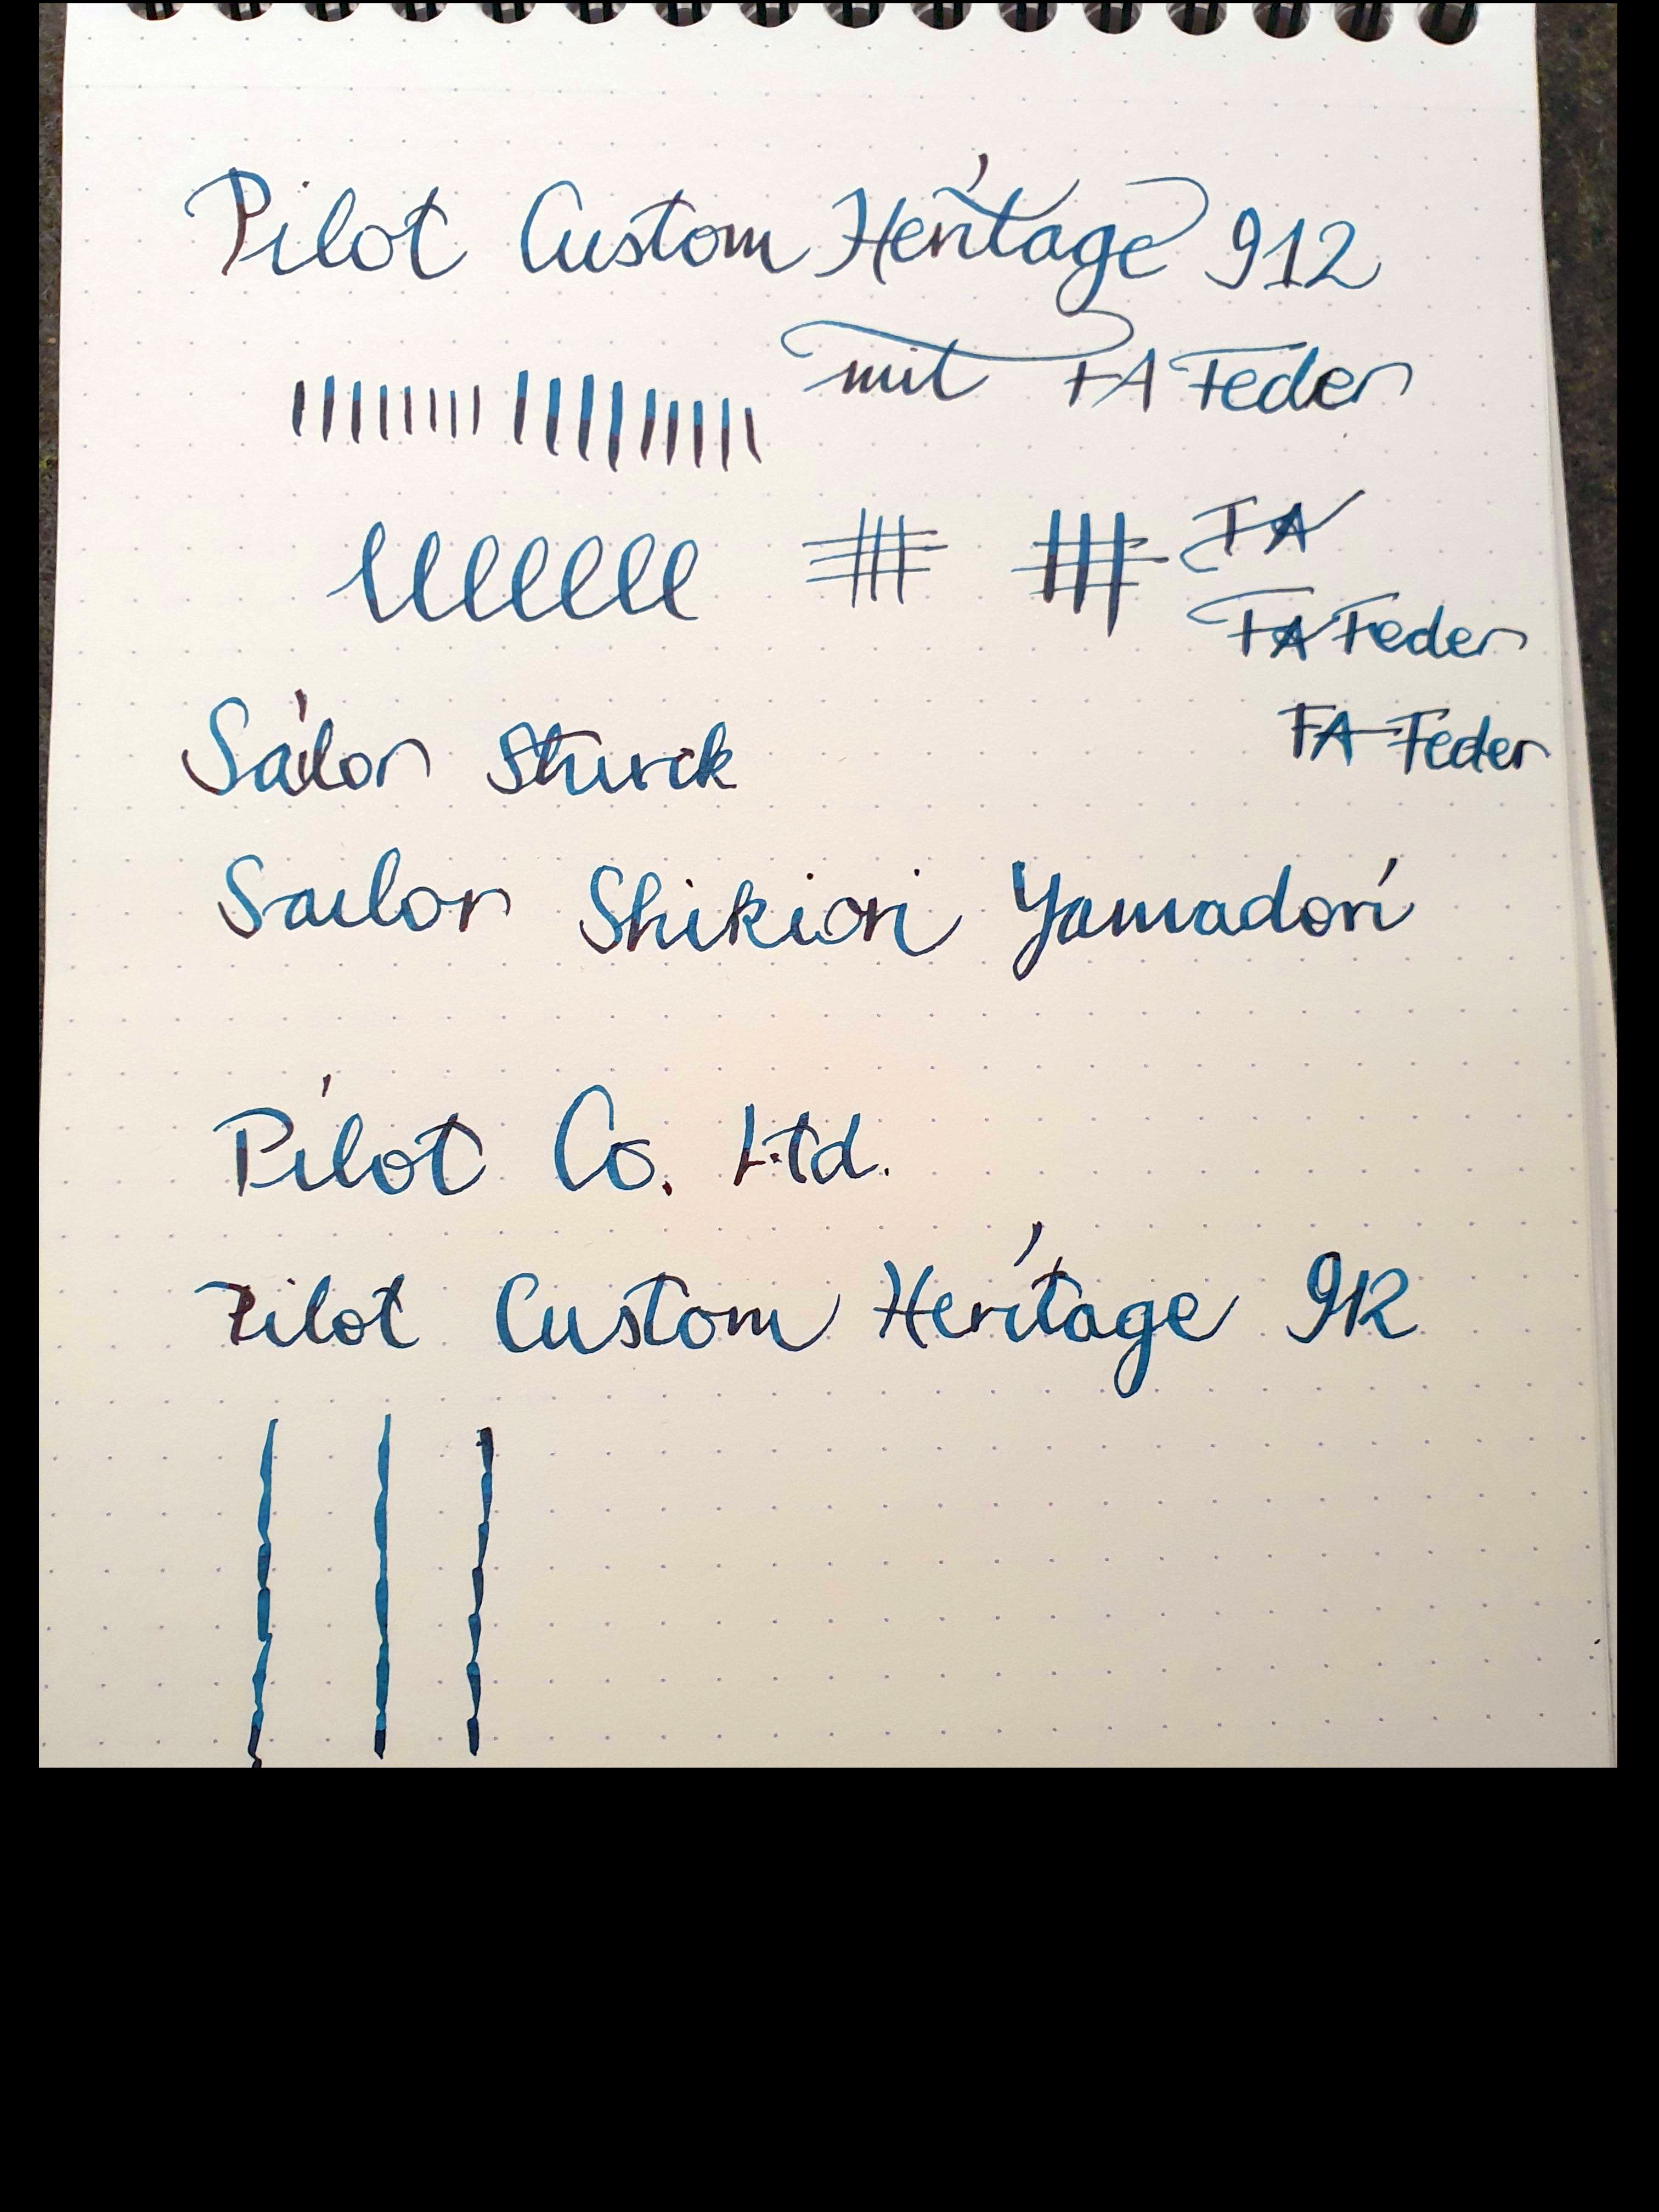 Pilot Custom Heritage 912
mit FA Feder
FA
FA Feder
FA Feder
Sailor
Sailor Shikiori Yamadori
Pilot Co. Ltd.
Pilot Custom Heritage 912